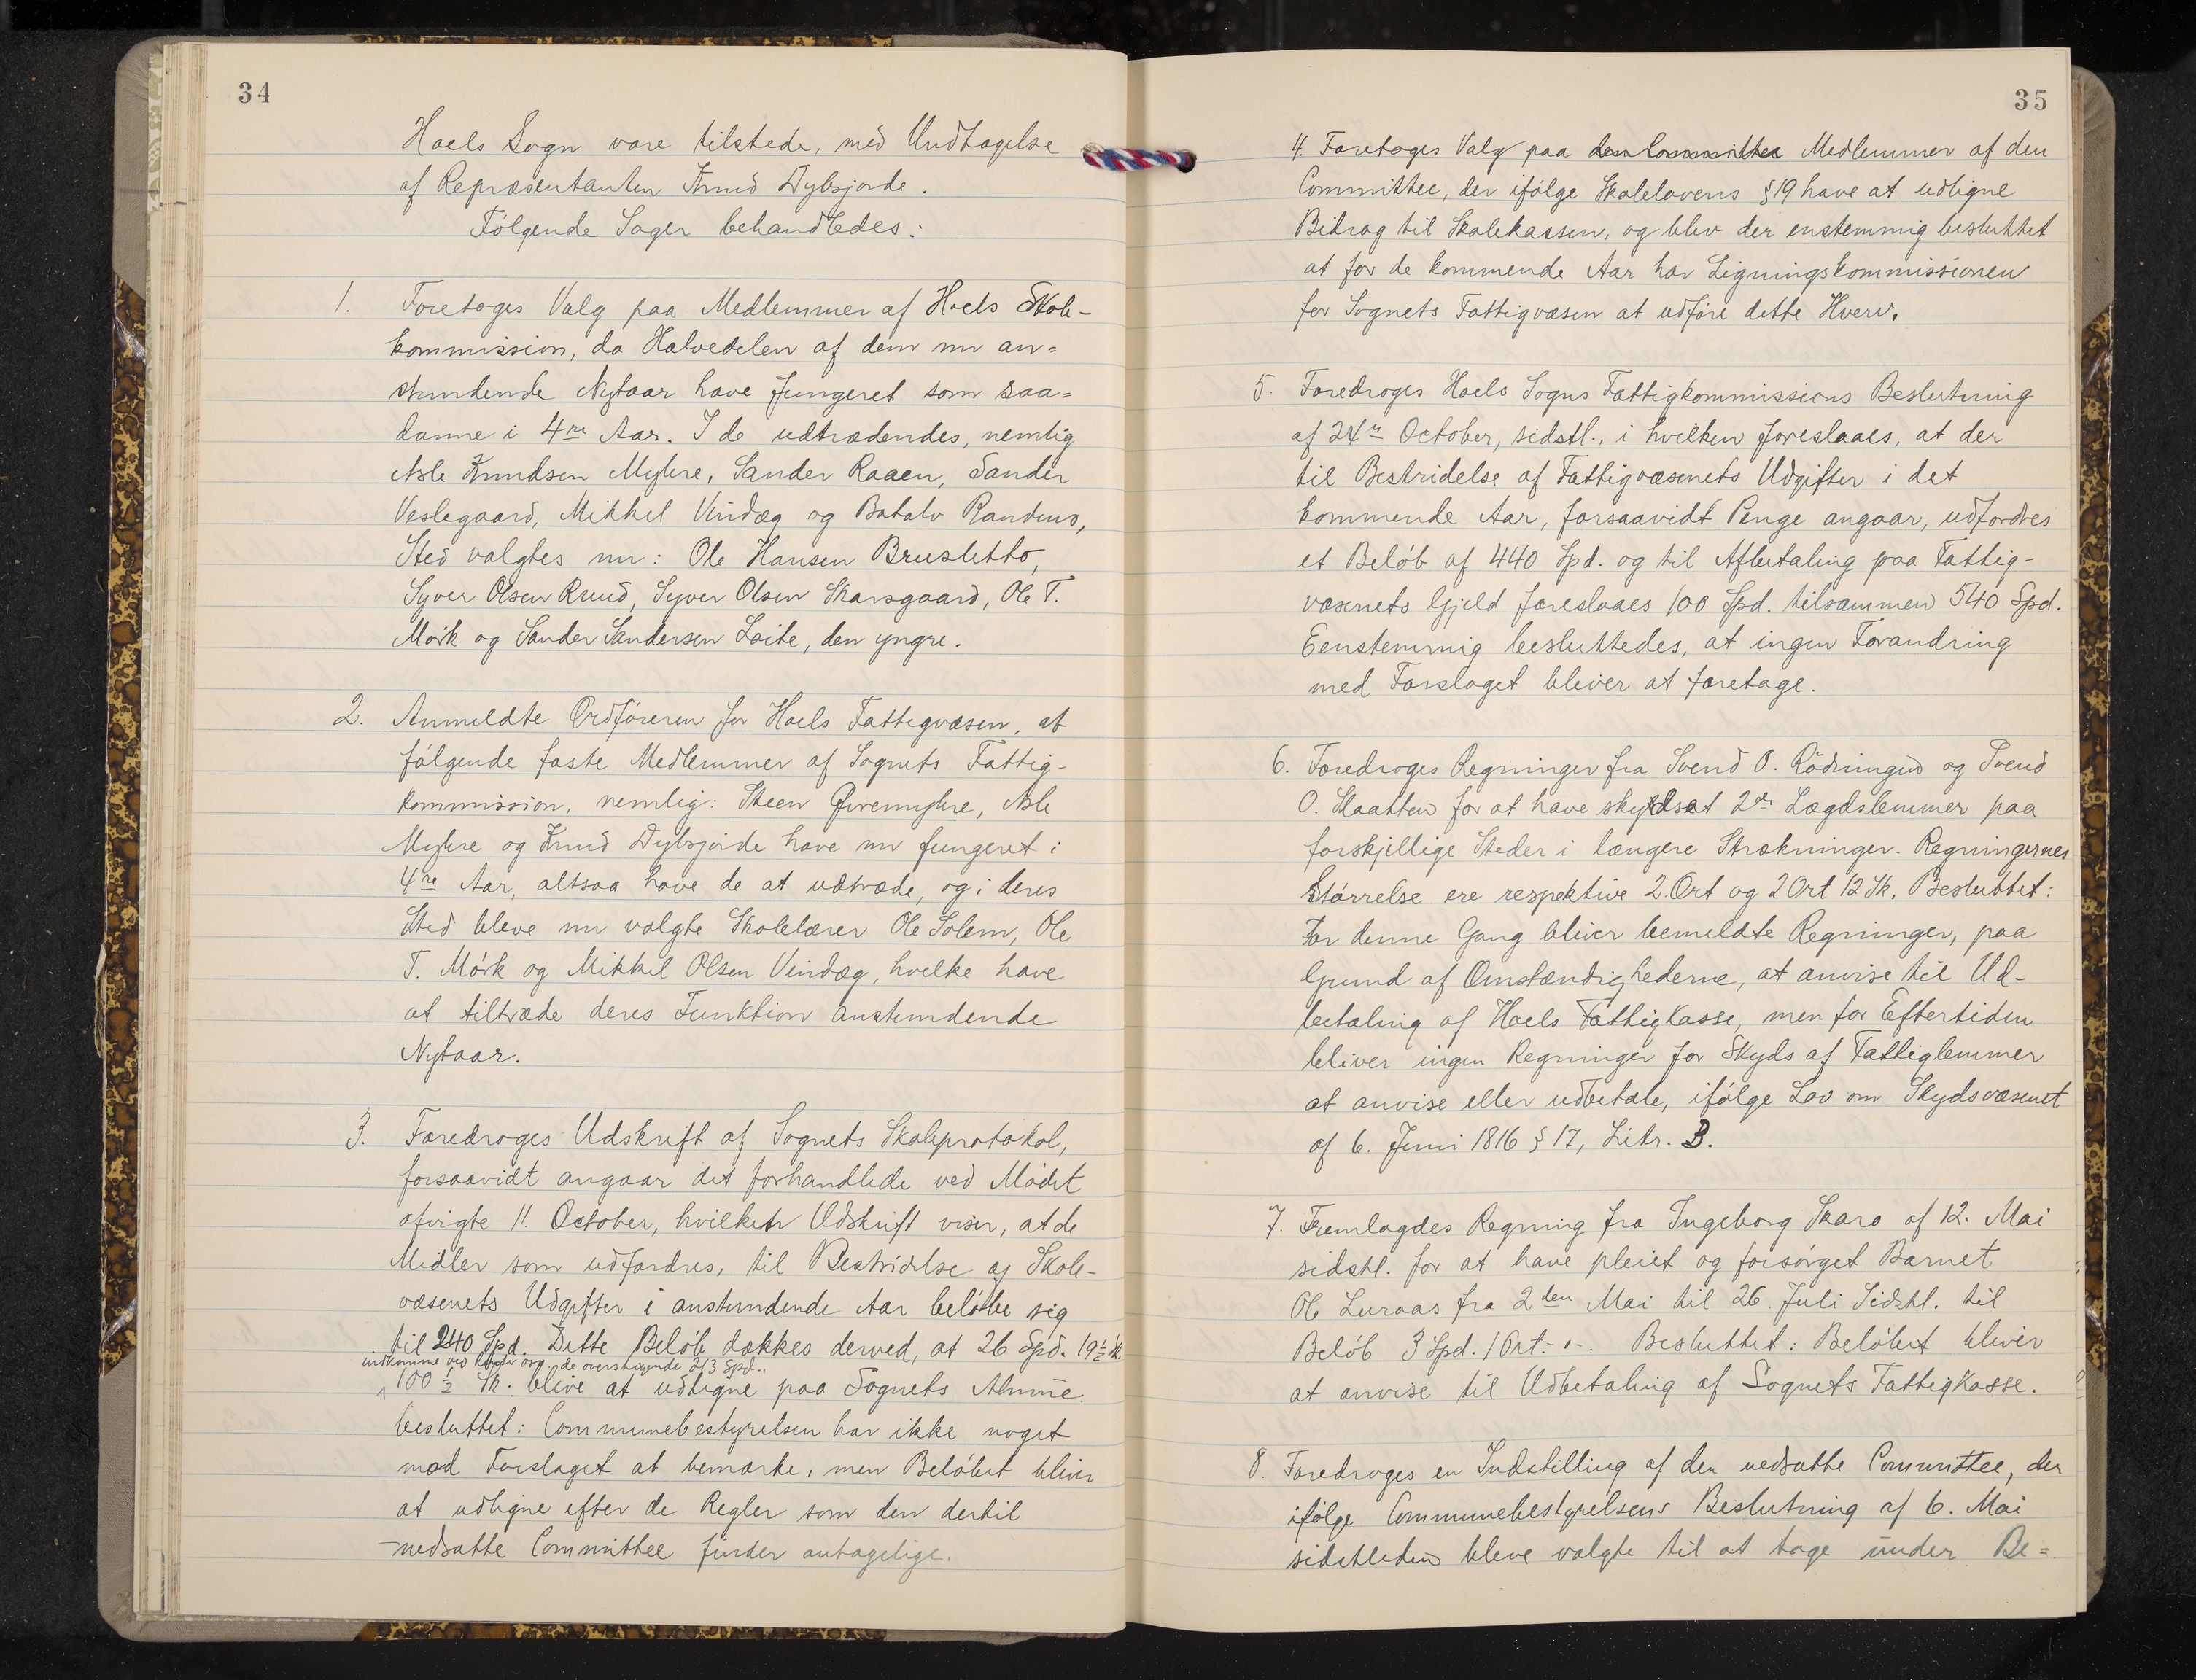 34
Hoels Sogn vare tilstede, med Undtagelse
af Repræsentanten Knud Dybsjorde.
Følgende Sager behandledes:
1. Foretoges Valg paa Medlemmer af Hoels Skole-
kommission, da Halvedelen af dem nu an=
stundende Nytaar have fungeret som saa=
danne i 4re Aar. I de udtrædendes, nemlig
Asle Knudsen Myhre, Sander Raaen, Sander
Veslegaard, Mikkel Vindæg og Botolv Randens,
Sted valgtes nu: Ole Hansen Brusletto,
Syver Olsen Ruud, Syver Olsen Skarsgaard, Ole T.
Mörk og Sander Sandersen Loite, den yngre.
2. Anmeldte Ordføreren for Hoels Fattigvæsen, at
følgende faste Medlemmer af Sognets Fattig-
kommission, nemlig: Steen Øvremyhre, Asle
Myhre og Knud Dybsjorde have nu fungeret i
4re Aar, altsaa have de at udtræde, og i deres
Sted bleve nu valgte Skolelærer Ole Solem, Ole
T. Mörk og Mikkel Olsen Vindæg, hvilke have
at tiltræde deres Funktion anstundende
Nytaar.
3. Foredroges Udskrift af Sognets Skoleprotokol,
forsaavidt angaar det forhandlede ved Mødet
afvigte 11. October, hvilken Udskrift viser, at de
Midler som udfordres, til Bestridelse af Skole-
væsenets Udgifter i anstundende Aar beløbe sig
til 240 Spd. Dette Beløb dækkes derved, at 26 Spd. 19½ Sk.
indkomme ved de overstigende 213 Spd.
100½ Sk. blive at udligne paa Sognets Almue.
besluttet: Communebestyrelsen har ikke noget
mod Forslaget at bemærke, men Beløbet bliver
at udligne efter de Regler som den dertil
nedsatte Committee finder antagelige.
35
4. Foretoges Valg paa den Committee Medlemmer af den
Committee, der ifølge Skolelovens § 19 have at udligne
Bidrag til Skolekassen, og blev der enstemmig besluttet
at for de kommende Aar har Ligningskommissionen
for Sognets Fattigvæsen at udføre dette Hverv.
5. Foredroges Hoels Sogns Fattigkommissions Beslutning
af 24de October, sidstl., i hvilken foreslaaes, at der
til Bestridelse af Fattigvæsenets Udgifter i det
kommende Aar, forsaavidt Penge angaar, udfordres
et Beløb af 440 Spd. og til Afbetaling paa Fattig-
væsenets Gjeld foreslaaes 100 Spd. tilsammen 540 Spd.
Eenstemmig besluttedes, at ingen Forandring
med Forslaget bliver at foretage.
6. Foredroges Regninger fra Svend O. Rödningen og Svend
O. Slaatten for at have skydset 2de Lægdslemmer paa
forskjellige Steder i længere Strækninger. Regningernes
Størrelse ere respektive 2 Ort og 2 Ort 12 Sk. Besluttet:
For denne Gang bliver bemeldte Regninger, paa
Grund af Omstændighederne, at anvise til Ud-
betaling af Hoels Fattigkasse, men for Eftertiden
bliver ingen Regninger for Skyds af Fattiglemmer
at anvise eller udbetale, ifølge Lov om Skydsvæsenet
af 6. Juni 1816 § 17, Litr. B.
7. Fremlagdes Regning fra Ingeborg Skaro af 12. Mai
sidstl. for at have pleiet og forsørget Barnet
Ole Luraas fra 2den Mai til 26. Juli Sidstl. til
Beløb 3 Spd. 1 Ort.-"-. Besluttet: Beløbet bliver
at anvise til Udbetaling af Sognets Fattigkasse.
8. Foredroges en Indstilling af den nedsatte Committee, der
ifølge Communebestyrelsens Beslutning af 6. Mai
sidstleden bleve valgte til at tage under Be=